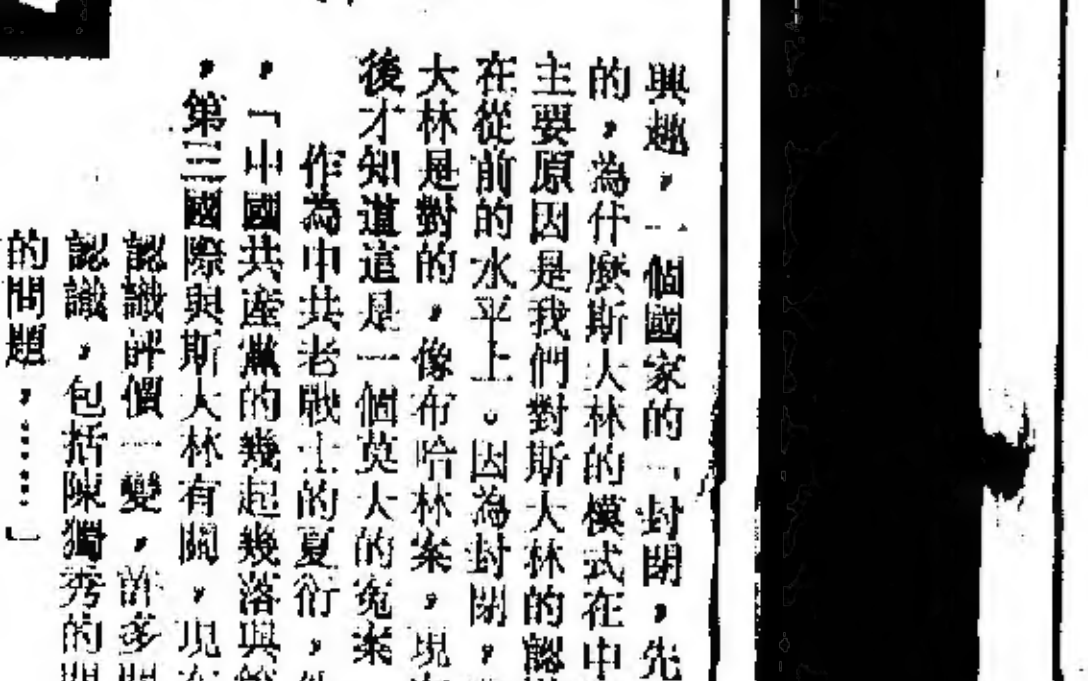 興趣，一個國家的「封閉，先
的，為什麼斯大林的模式在中
主要原因是我們對斯大林的認
在從前的水平上。因為封閉，
大林是對的，像布哈林案，現
後才知道這是一個莫大的冤案
作為中共老戰士的夏衍，
，「中國共產黨的幾起幾落與
，第三國際與斯大林有關，現在
認識評價一變，許多問
認識，包括陳獨秀的問
的問題，……」